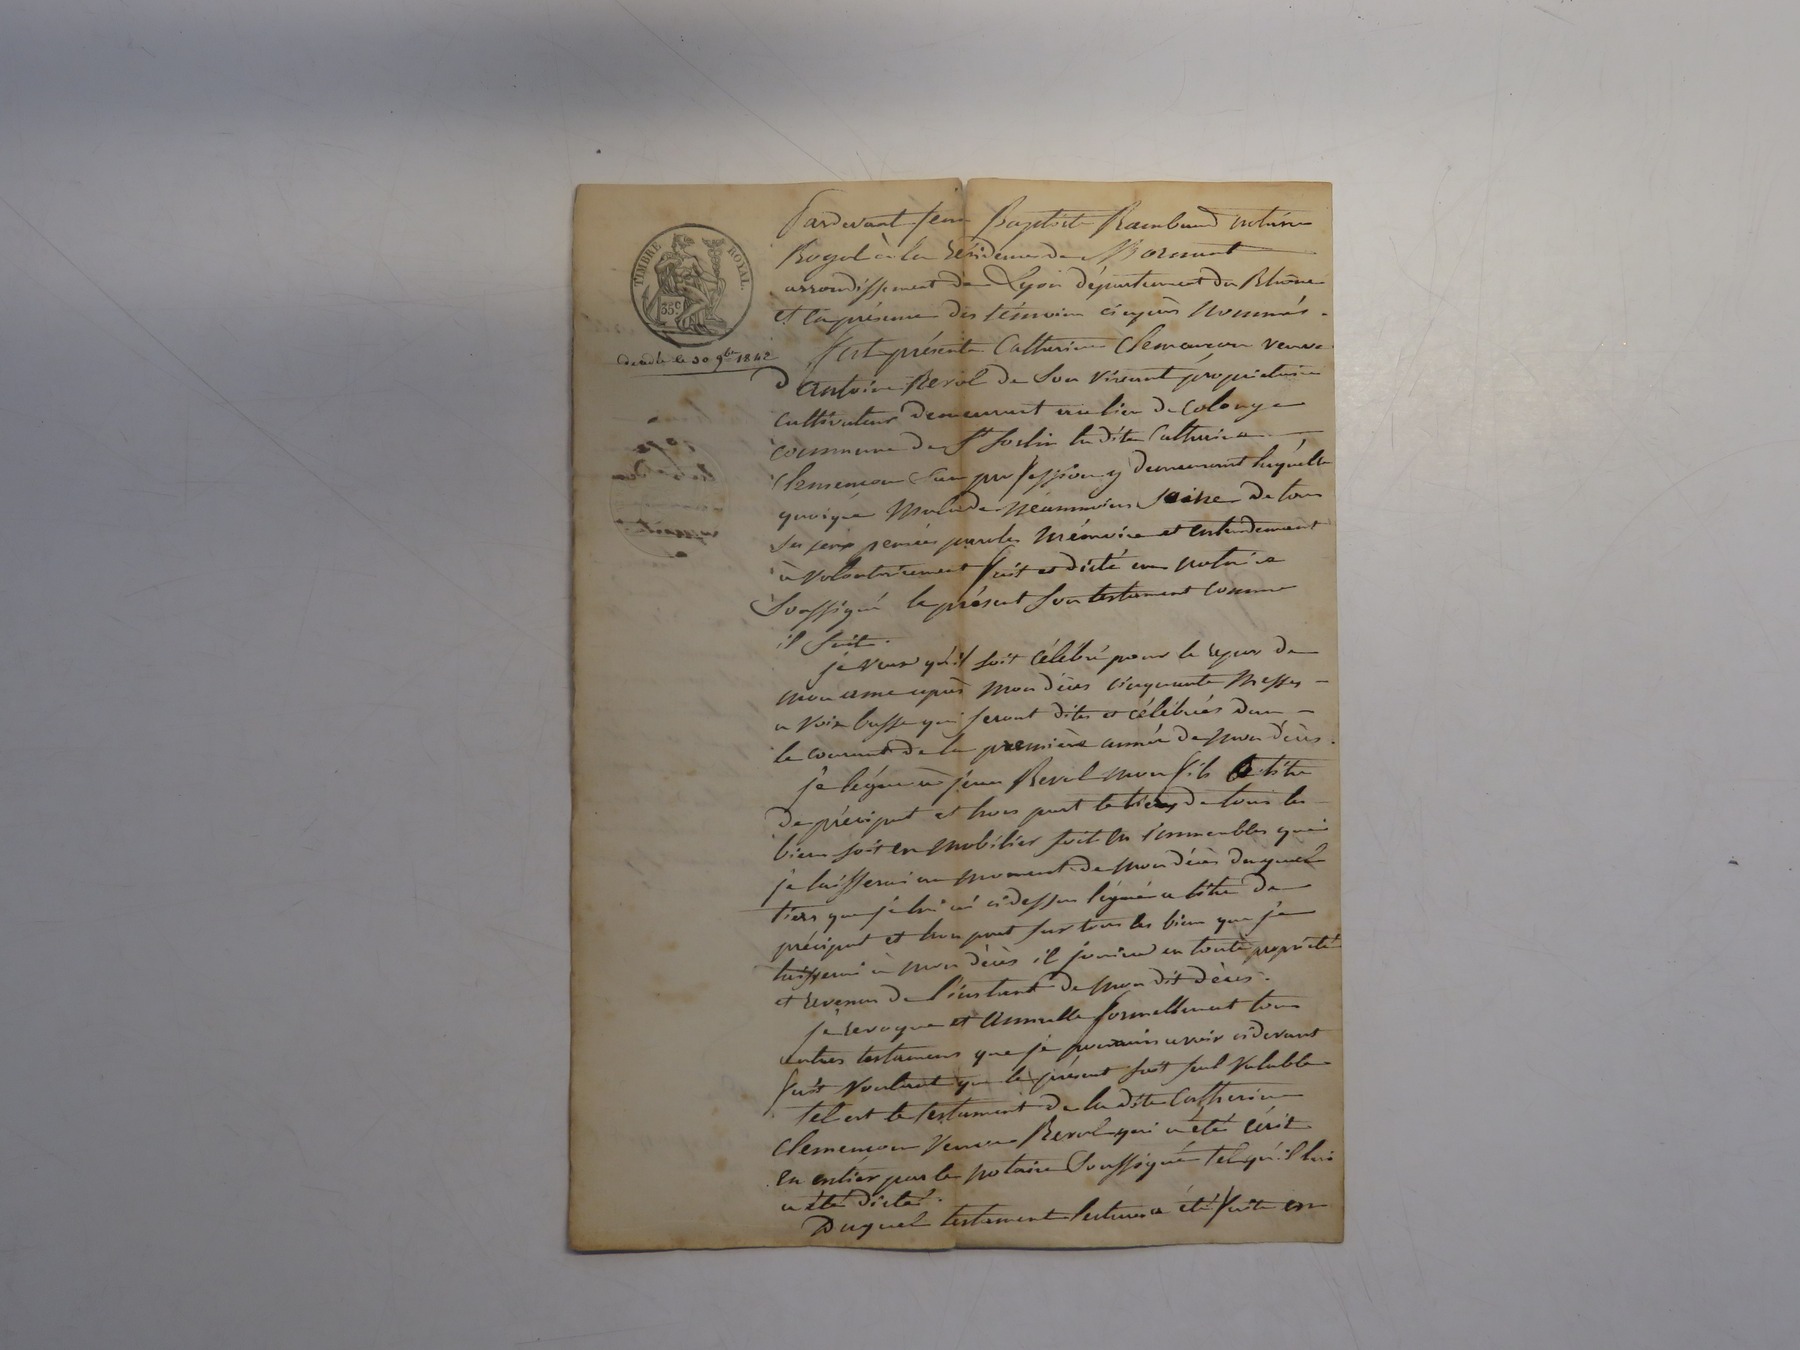 TIMBRE ROYAL.
35 C
décédée le 30 9bre 1842
Pardevant Jean Baptiste Rambaud notaire
Royal à la résidence de Mornant
arrondissement de Lyon département du Rhône
et en présence des témoins ci après nommés.
fut présente Catherine Clemençon veuve
d'Antoine Revol de son vivant propriétaire
cultivateur demeurant au lieu de Colonge
commune de St Sorlin la dite Catherine
Clemençon sans profession y demeurant laquelle
quoique malade néanmoins saine de tous
ses sens pensées paroles mémoire et entendement
a volontairement fait et dicté au notaire
soussigné le présent son testament comme
il suit.
je veux qu'il soit célébré pour le repos de
mon ame après mon décès cinquante messes
a voix basse qui seront dites et célébrées dans
le courant de la première année de mon décès.
je légue à jean Revol mon fils a titre
de préciput et hors part le tiers de tous les
biens soit en mobilier soit en immeubles que
je laisserai au moment de mon décès duquel
tiers que je lui ai cidessus légué a titre de
préciput et hors part sur tous les biens que je
laisserai à mon décès il jouira en toute propriété
et revenus de l'instant de mon dit décès.
je revoque et annulle formellement tous
autres testamens que je pourrais avoir cidevant
fait voulant que le présent soit seul valable
tel est le testament de la dite Catherine
Clemençon veuve Revol qui a été écrit
en entier par le notaire soussigné tel qu'il lui
a été dicté.
Duquel testament lecture a été faite en